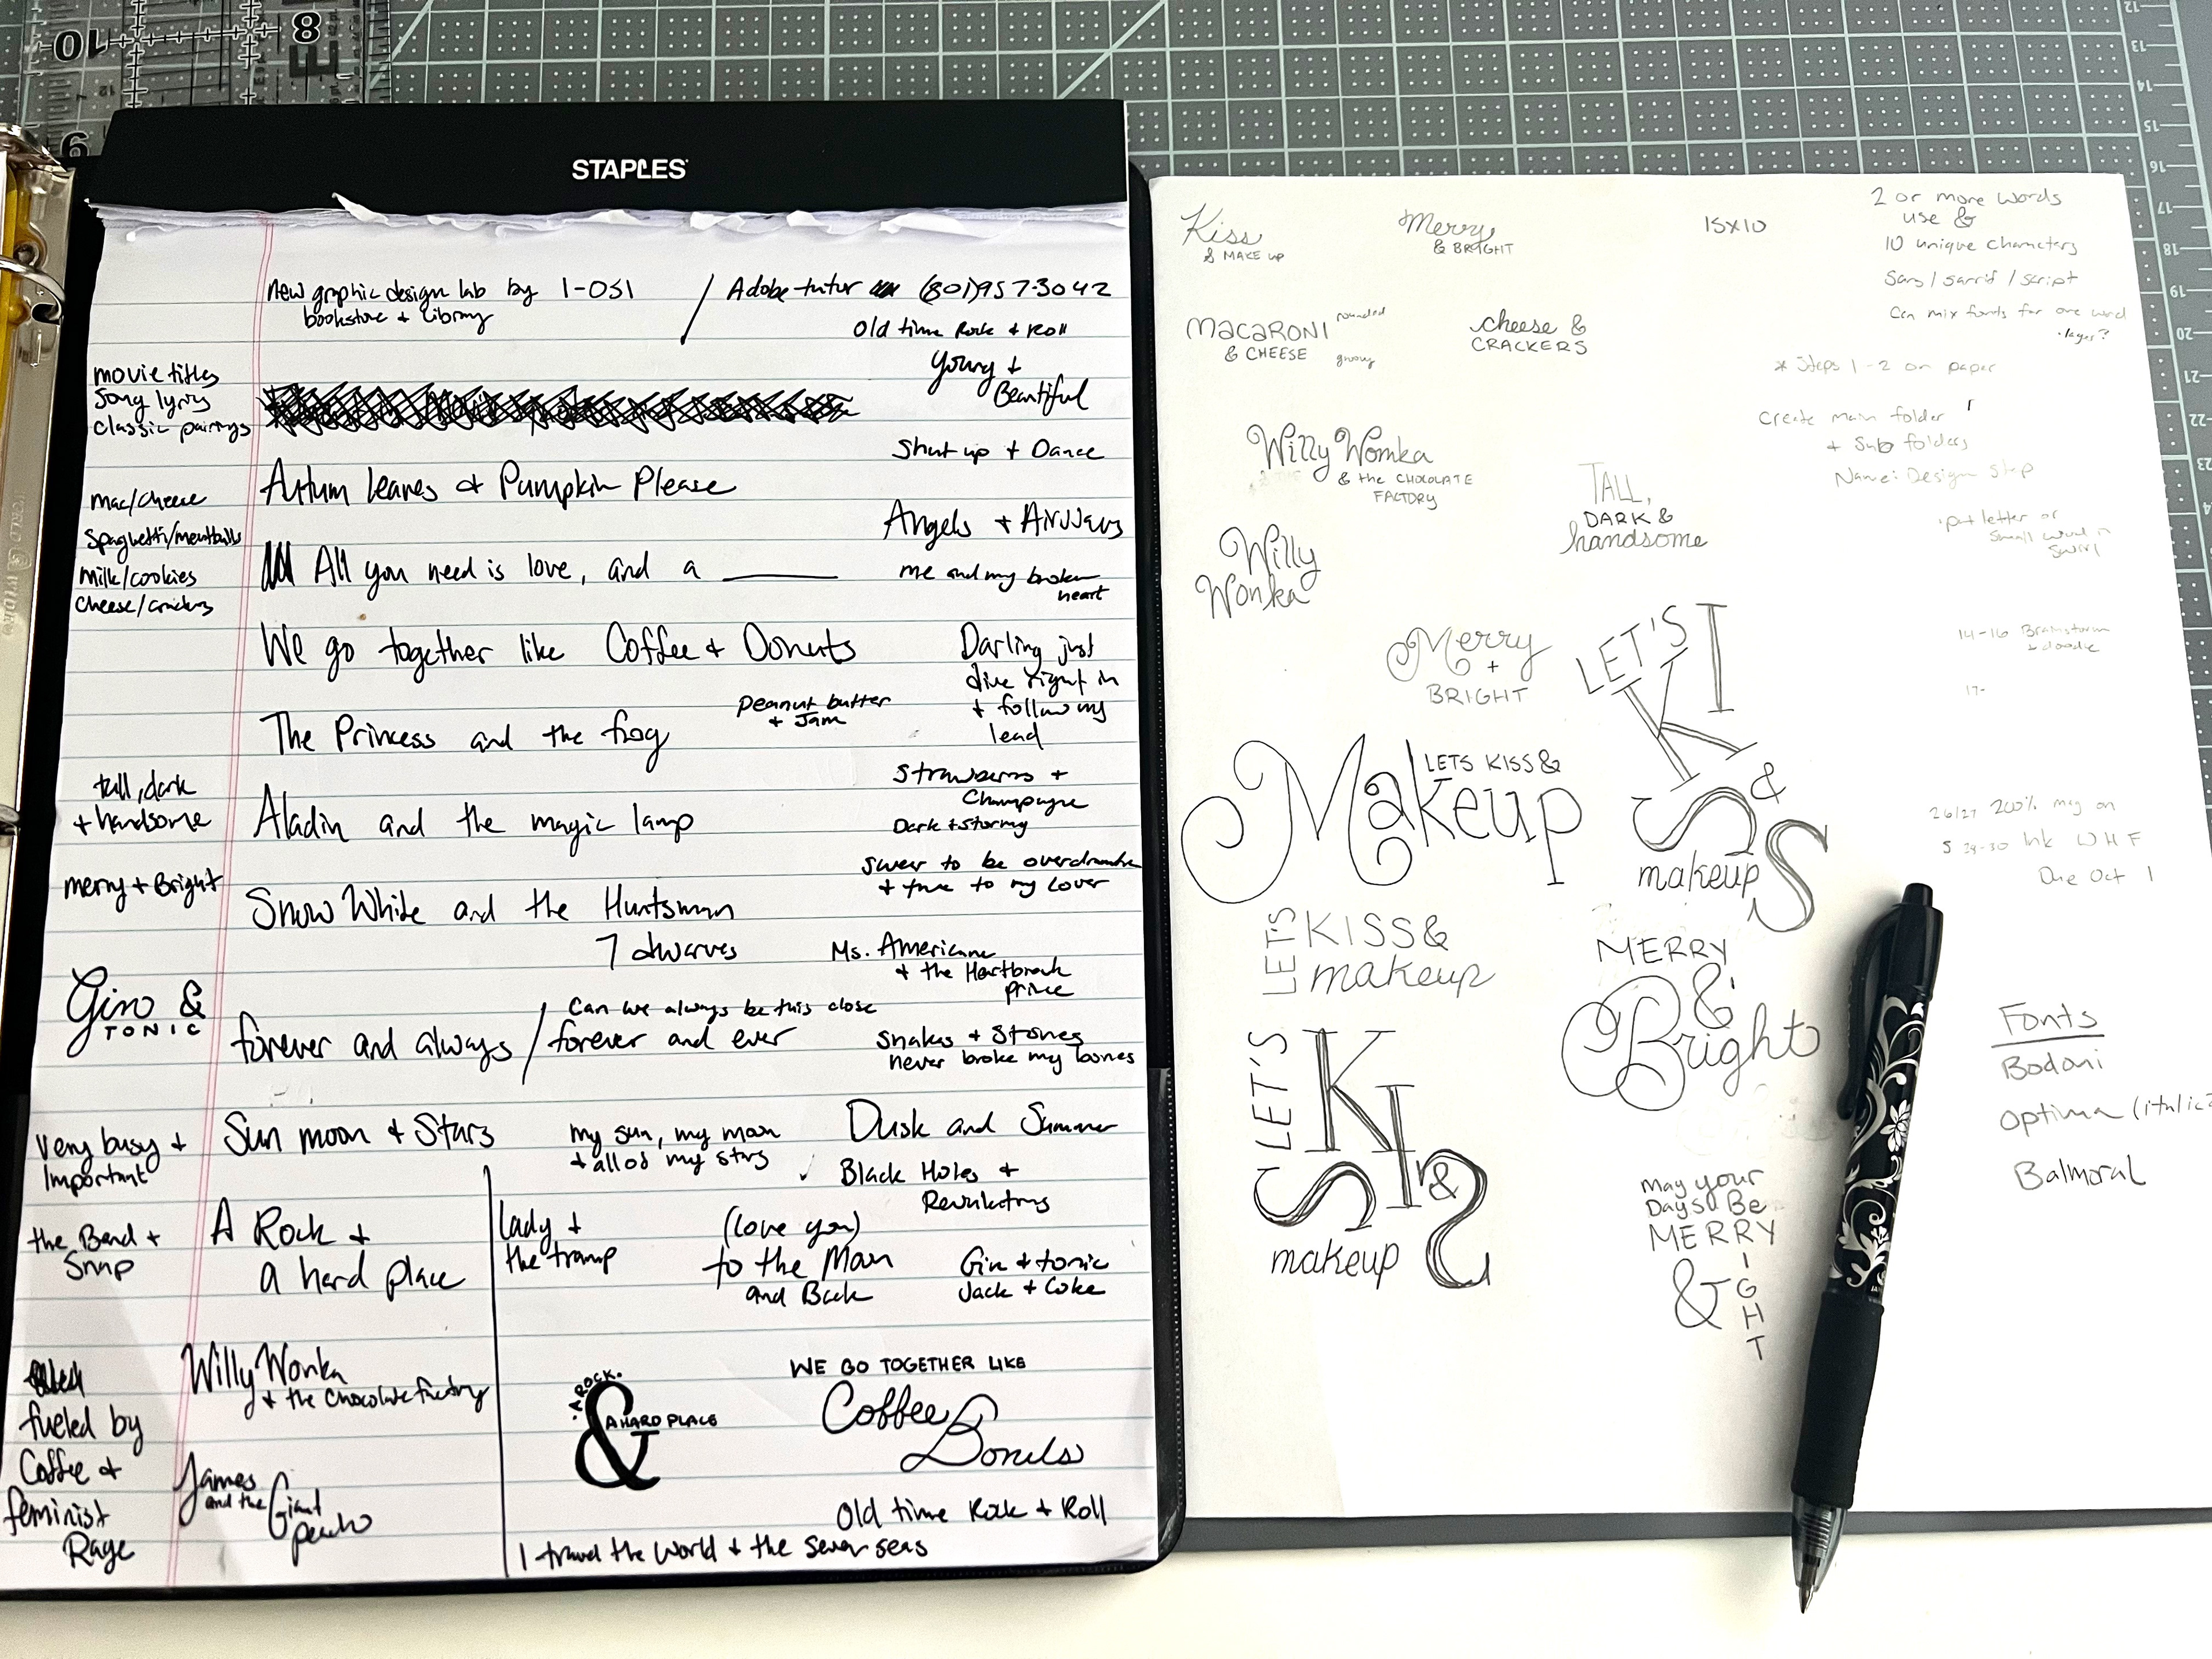 10
8
E
9
STAPLES
New graphic design lab by 1-051
bookstore + Library
Adobe tutor (801)957-3042
Old time Rock + Roll
Young +
Beautiful
Shut up + Dance
Angels + Airwaves
me and my broken
heart
Darling just
dive right in
+ follow my
lead
Champagne
Dark + Stormy
swear to be overdramatic
+ true to my Lover
Ms. Americana
+ the Heartbreak
prince
Snakes + Stones
never broke my bones
Dusk and Summer
Black Holes +
Revelations
Gin + tonic
Jack + Coke
movie titles
Song lyrics
Classic pairings
mac/cheese
Spaghetti/meatballs
Milk/cookies
Cheese/crackers
tall, dark
+ handsome
merry + Bright
Gino &
TONIC
Very busy +
Important
the Bend +
Snap
fueled by
Coffee +
feminist
Rage
Autum leaves & Pumpkin Please
All you need is love, and a
We go together like Coffee + Donuts
peanut butter
+ Jam
The Princess and the frog
Aladin and the magic lamp
Snow White and the Huntsman
7 dwarves
Can we always be this close
forever and always / forever and ever
Sun moon & Stars
my sun, my moon
+ all of my stars
A Rock +
a hard place
lady +
the tramp
(love you)
to the Moon
and Back
Willy Wonka
+ the Chocolate factory
James
and the Giant
peach
A ROCK
&
A HARD PLACE
WE GO TOGETHER LIKE
Coffee &
Donuts
Old time Rock + Roll
I travel the world + the seven seas
Kiss
& MAKE UP
Merry
& BRIGHT
15x10
2 or more words
use &
10 unique characters
Sans / sarrif / script
Can mix fonts for one word
MACARONI
& CHEESE
rounded
groovy
cheese &
CRACKERS
* Steps 1-2 on paper
Create main folder
+ Sub folders
Name: Design Step
Willy Wonka
& the CHOCOLATE
FACTORY
TALL,
DARK &
handsome
put letter or
small word in
swirl
Willy
Wonka
Merry
+
BRIGHT
LET'S
KISS
&
makeup
14-16 Brainstorm
+ doodle
17-
LETS KISS &
Makeup
26/27 200% mag on
Due Oct 1
LET'S
KISS &
makeup
MERRY
&
Bright
LET'S
KISS
&
makeup
May your
Days Be
MERRY
&
BRIGHT
Fonts
Bodoni
Optima (italic?
Balmoral
12
13
14
15
16
17
18
19
20
21
22
23